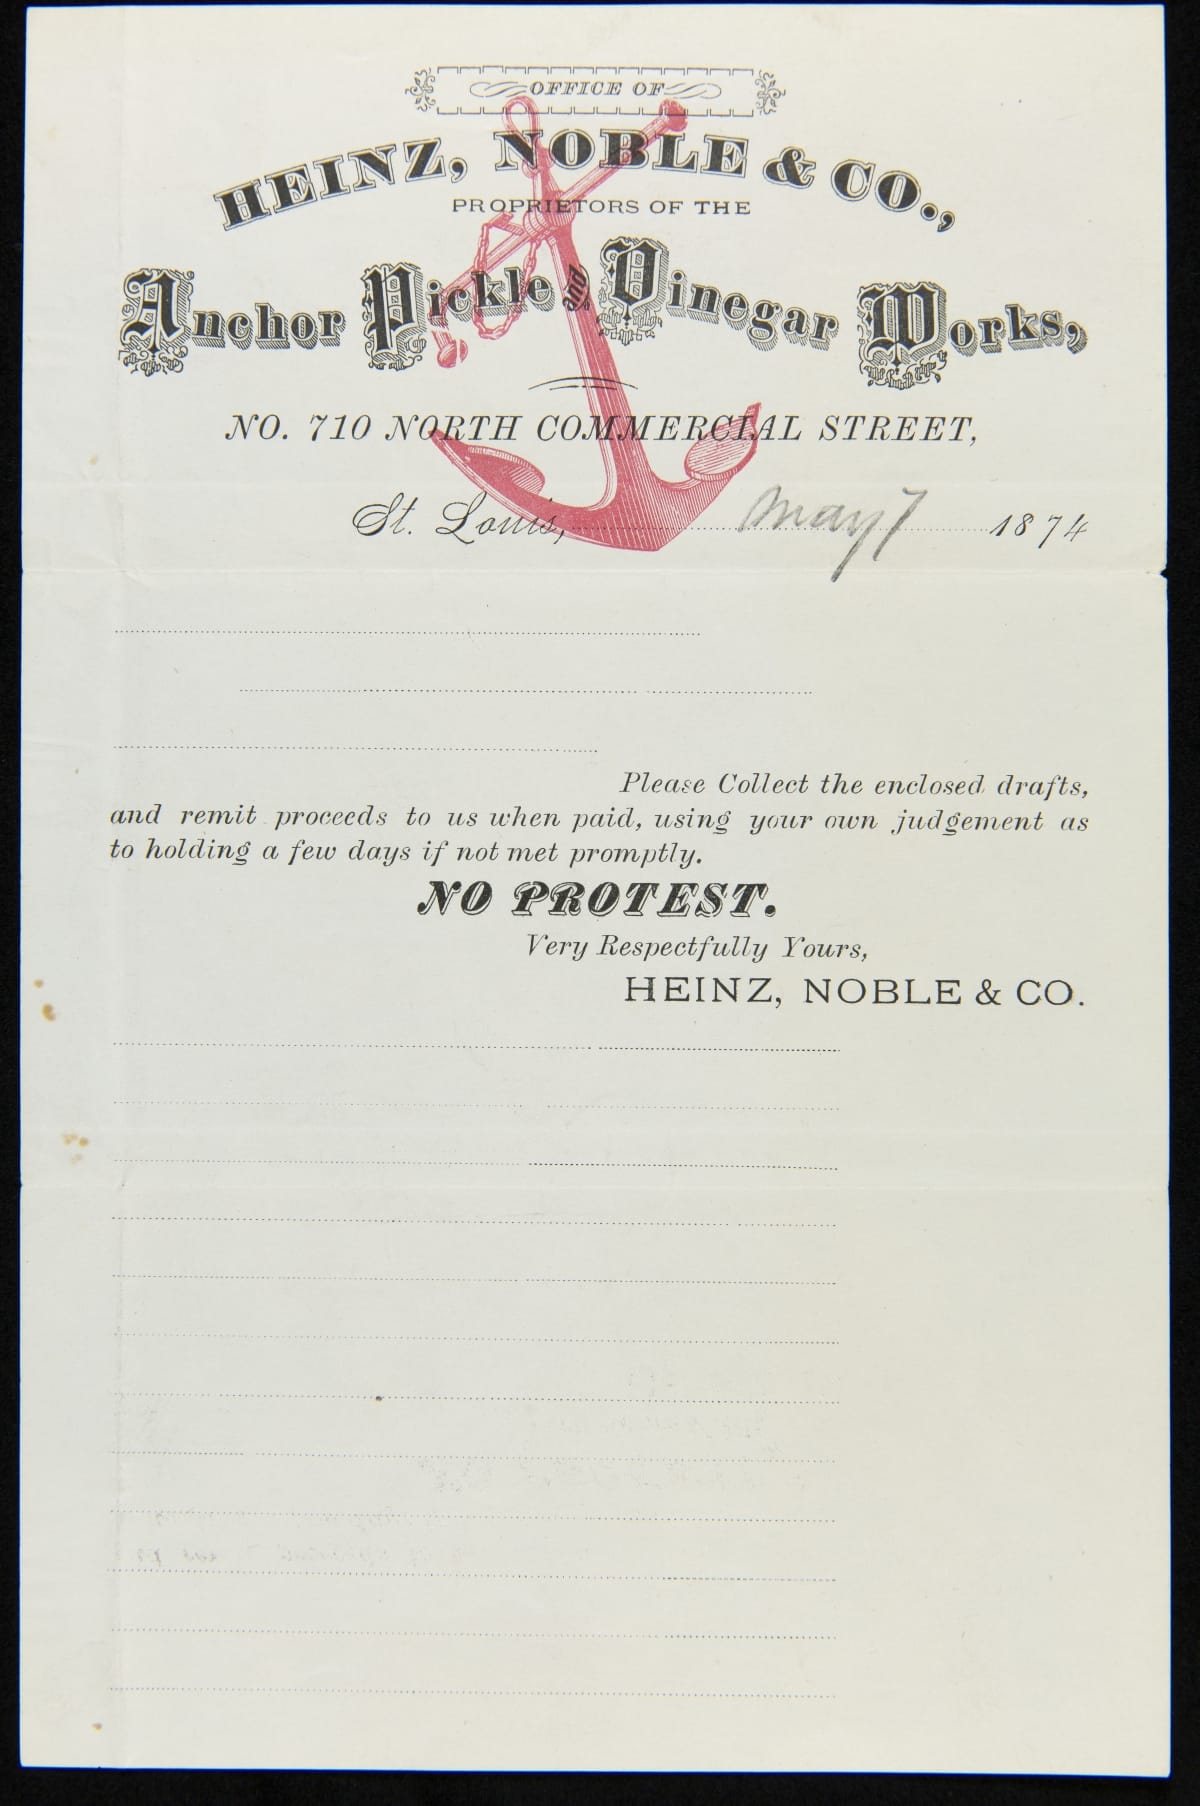 OFFICE OF
HEINZ, NOBLE & CO.,
PROPRIETORS OF THE
Anchor Pickle and Vinegar Works,
NO. 710 NORTH COMMERCIAL STREET,
St. Louis, May 7 1874
Please Collect the enclosed drafts,
and remit proceeds to us when paid, using your own judgement as
to holding a few days if not met promptly.
NO PROTEST.
Very Respectfully Yours,
HEINZ, NOBLE & CO.